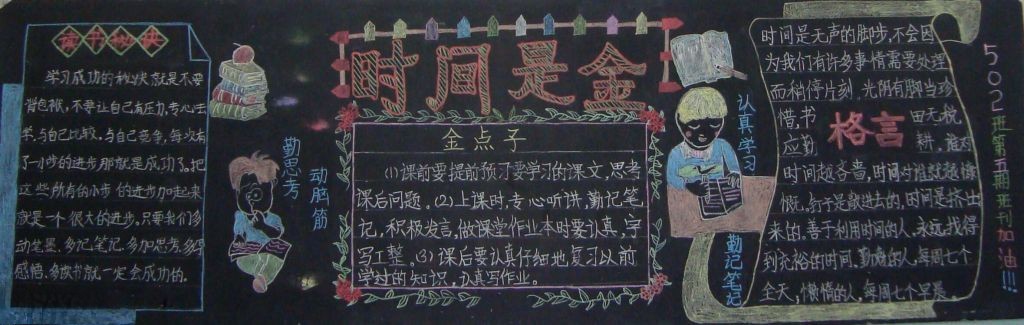 读书秘诀
学习成功的秘诀就是不要
背包袱,不要让自己有压力,专心于
学,与自己比较,与自己竞争,每次有
了一小步的进步那就是成功了。把
这些所有的小步的进步加起来
就是一个很大的进步。只要我们多
动笔墨,多记笔记,多加思考,多得
感悟,多读书就一定会成功的。
勤思考
动脑筋
时间是金
金点子
(1)课前要提前预习要学习的课文,思考
课后问题。(2)上课时,专心听讲,勤记笔
记,积极发言,做课堂作业本时要认真,字
写工整。(3)课后要认真仔细地复习以前
学过的知识,认真写作业。
认真学习
勤记笔记
时间是无声的脚步,不会因
为我们有许多事情需要处理
而稍停片刻。光阴有脚当珍
惜,书田无税
应勤耕。谁对
格言
时间越吝啬,时间对谁就越慷
慨。钉子是敲进去的,时间是挤出
来的。善于利用时间的人,永远找得
到充裕的时间。勤奋的人,每周七个
全天,懒惰的人,每周七个早晨。
502班第五期班刊加油!!!